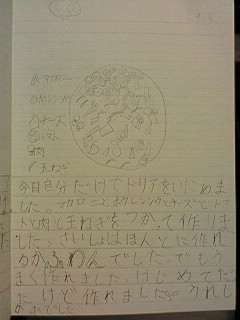 マカロニ
チーズ
トマト
肉
玉ねぎ
今日自分だけでドリアをいためま
した。マカロニとホウレンソウとチーズとトマ
トと肉と玉ねぎをつかって作りま
した。さいしょはほんとに作れ
るかふあんでした。でもう
まく作れました。はじめてだっ
たけど作れましたうれし
かったでした